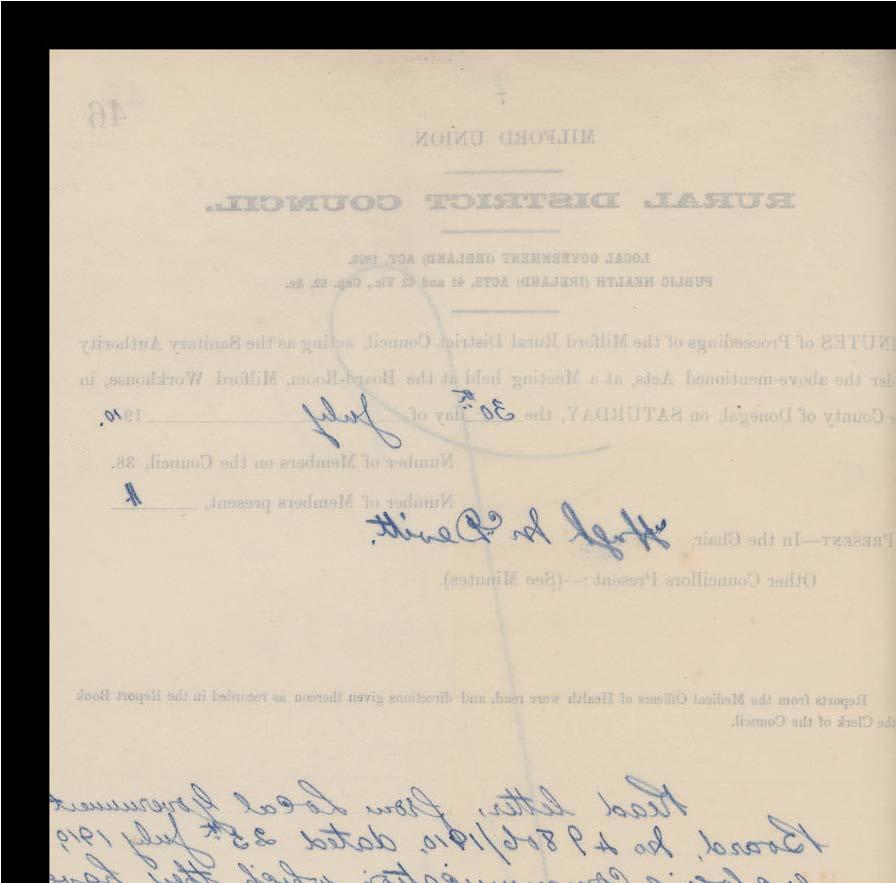 46
7
MILFORD UNION.
RURAL DISTRICT COUNCIL.
LOCAL GOVERNMENT (IRELAND) ACT, 1898.
PUBLIC HEALTH (IRELAND) ACTS, 41 and 42 Vic., Cap. 52, &c.
INUTES of Proceedings of the Milford Rural District Council, acting as the Sanitary Authority
der the above-mentioned Acts, at a Meeting held at the Board-Room, Milford Workhouse, in
e County of Donegal, on SATURDAY, the 30th day of July 1910.
Number of Members on the Council, 38.
Number of Members present, 4
PRESENT—In the Chair, Hugh McDevitt.
Other Councillors Present :—(See Minutes).
Reports from the Medical Officers of Health were read, and directions given thereon as recorded in the Report Book
the Clerk of the Council.
Read letter, from Local Government
Board, No 49806/1910, dated 25th July 1910,
which they have